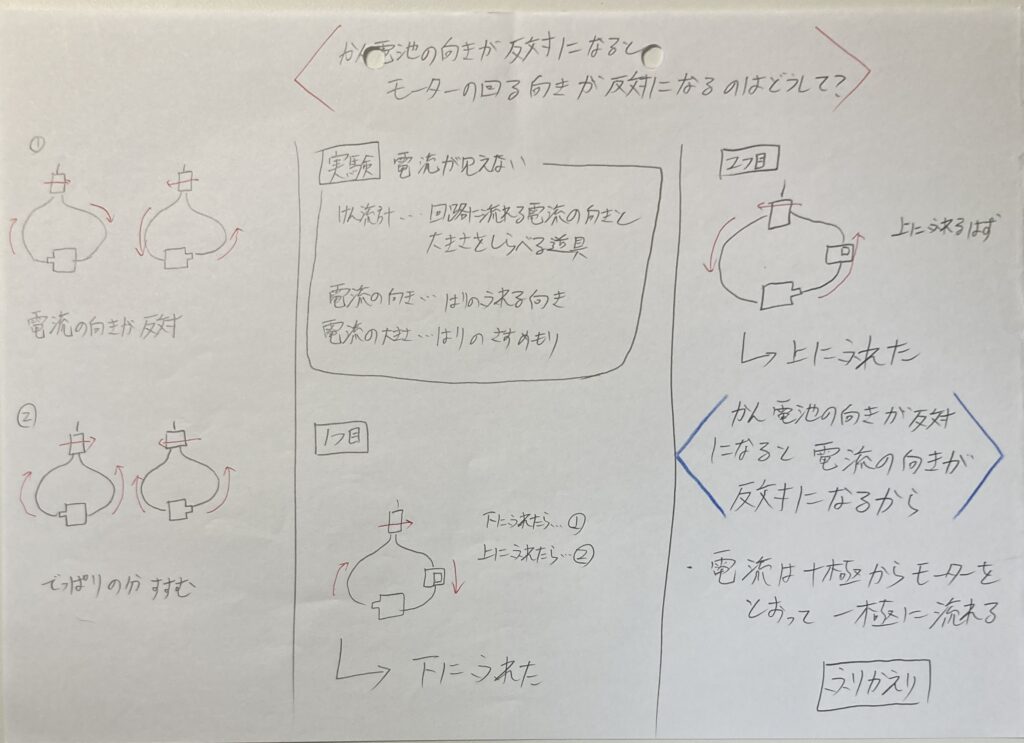 かん電池の向きが反対になると
モーターの回る向きが反対になるのはどうして?
①
電流の向きが反対
②
でっぱりの分すすむ
実験 電流が見えない
けん流計… 回路に流れる電流の向きと
大きさをしらべる道具
電流の向き…はりのふれる向き
電流の大きさ…はりのさすめもり
1つ目
下にふれたら…①
上にふれたら…②
下にふれた
2つ目
上にふれるはず
上にふれた
かん電池の向きが反対
になると 電流の向きが
反対になるから
・電流は+極からモーターを
とおって -極に流れる
ふりかえり